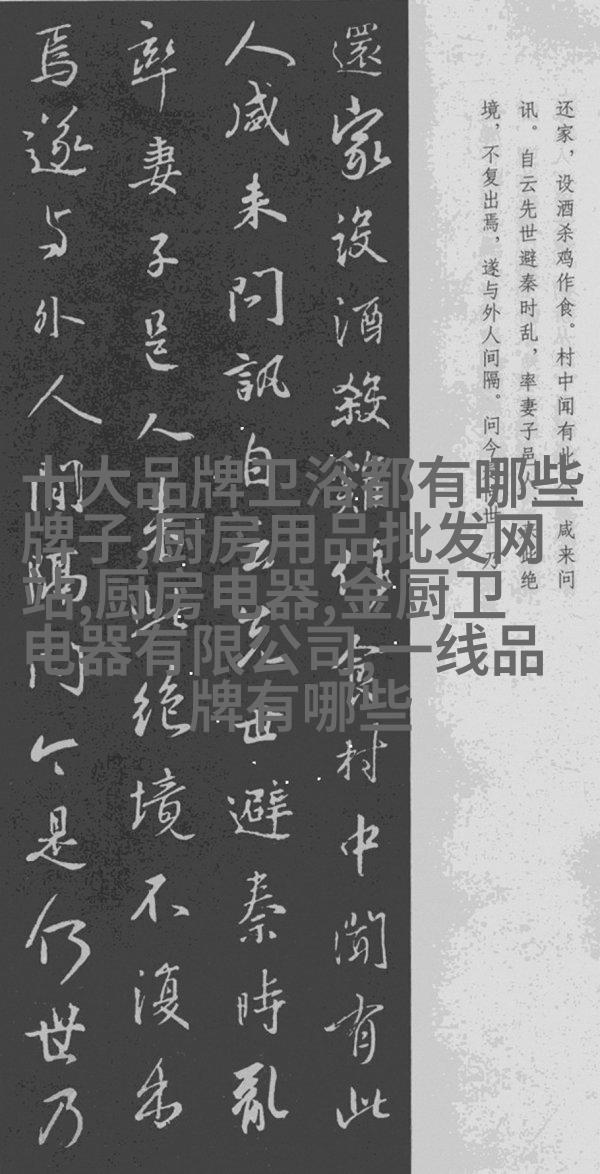 还家，设酒杀鸡作食。村中闻有此 咸来问
讯。自云先世避秦时乱，率妻子邑 此绝
境，不复出焉，遂与外人间隔。问今 世 乃
還家設酒殺雞作食村中聞有此
人咸来問訊自云先世避秦時亂
率妻子邑人来此绝境不復出
焉遂与外人間隔問今是何世乃
十大品牌卫浴都有哪些
牌子,厨房用品批发网
站,厨房电器,金厨卫
电器有限公司,一线品
牌有哪些